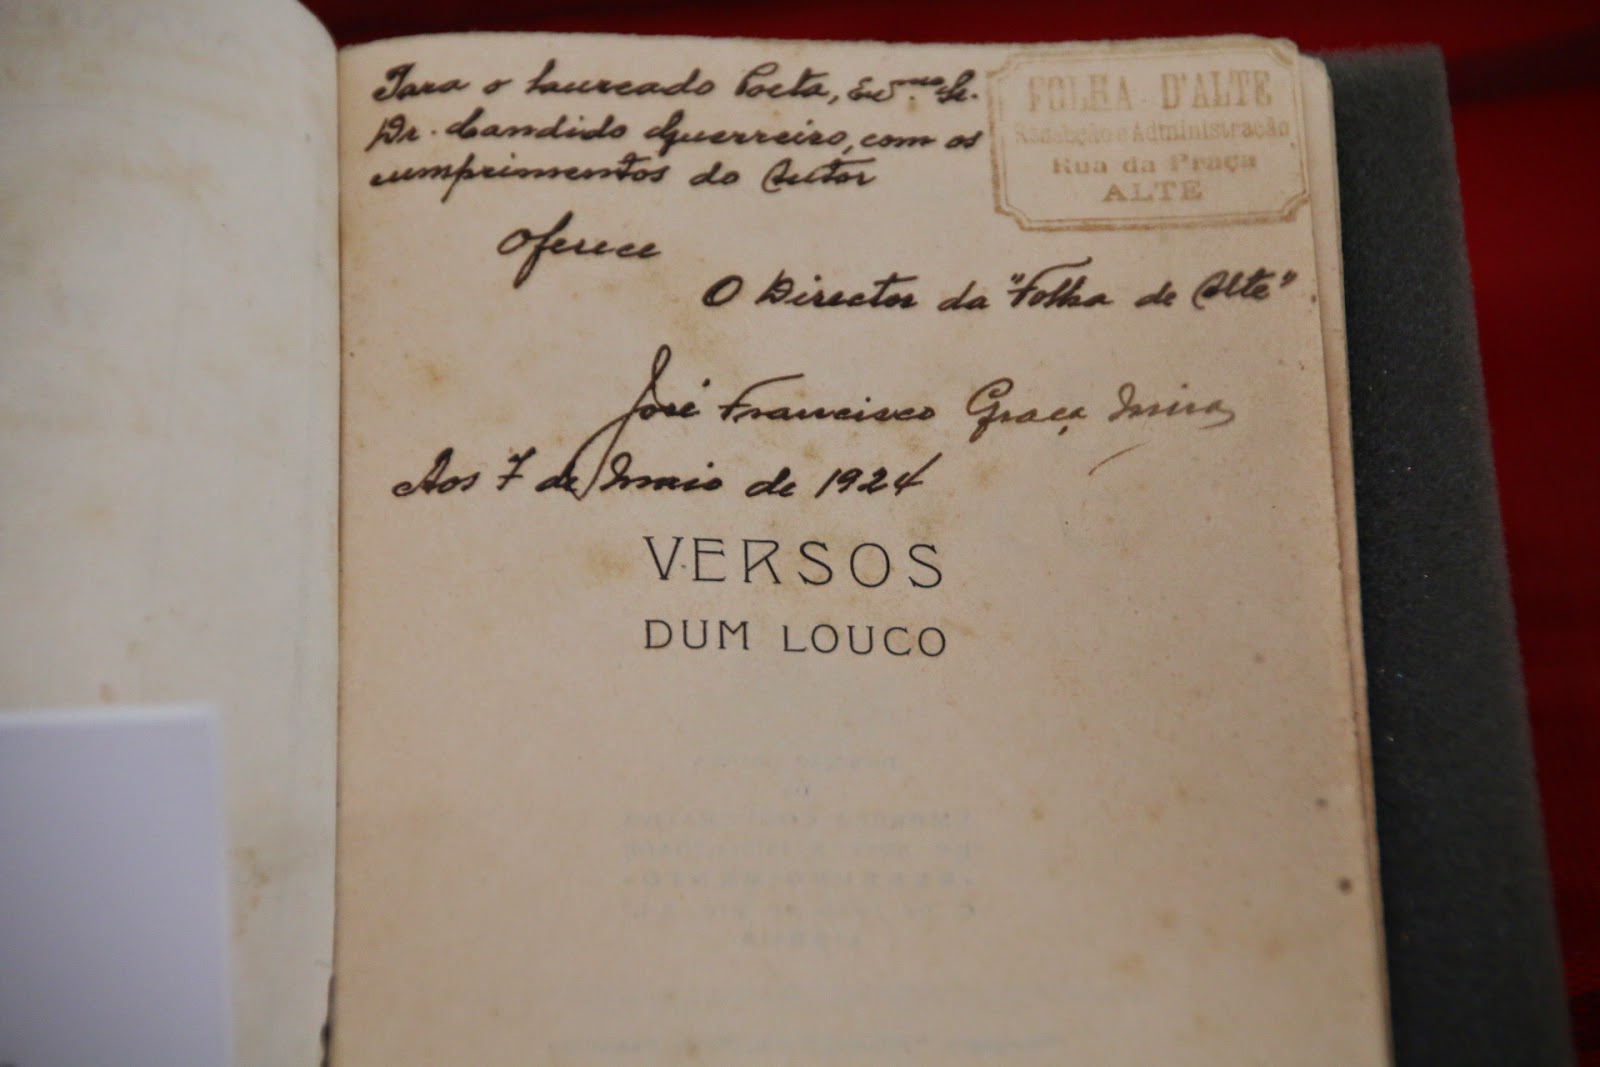 Para o laureado Poeta, Exmo. Sr.
Dr. Candido Guerreiro, com os
cumprimentos do Autor
Oferece
O Director da "Folha de Alte"
José Francisco Graça Mira
Aos 7 de Maio de 1924
FOLHA D'ALTE
Redacção e Administração
Rua da Praça
ALTE
VERSOS
DUM LOUCO